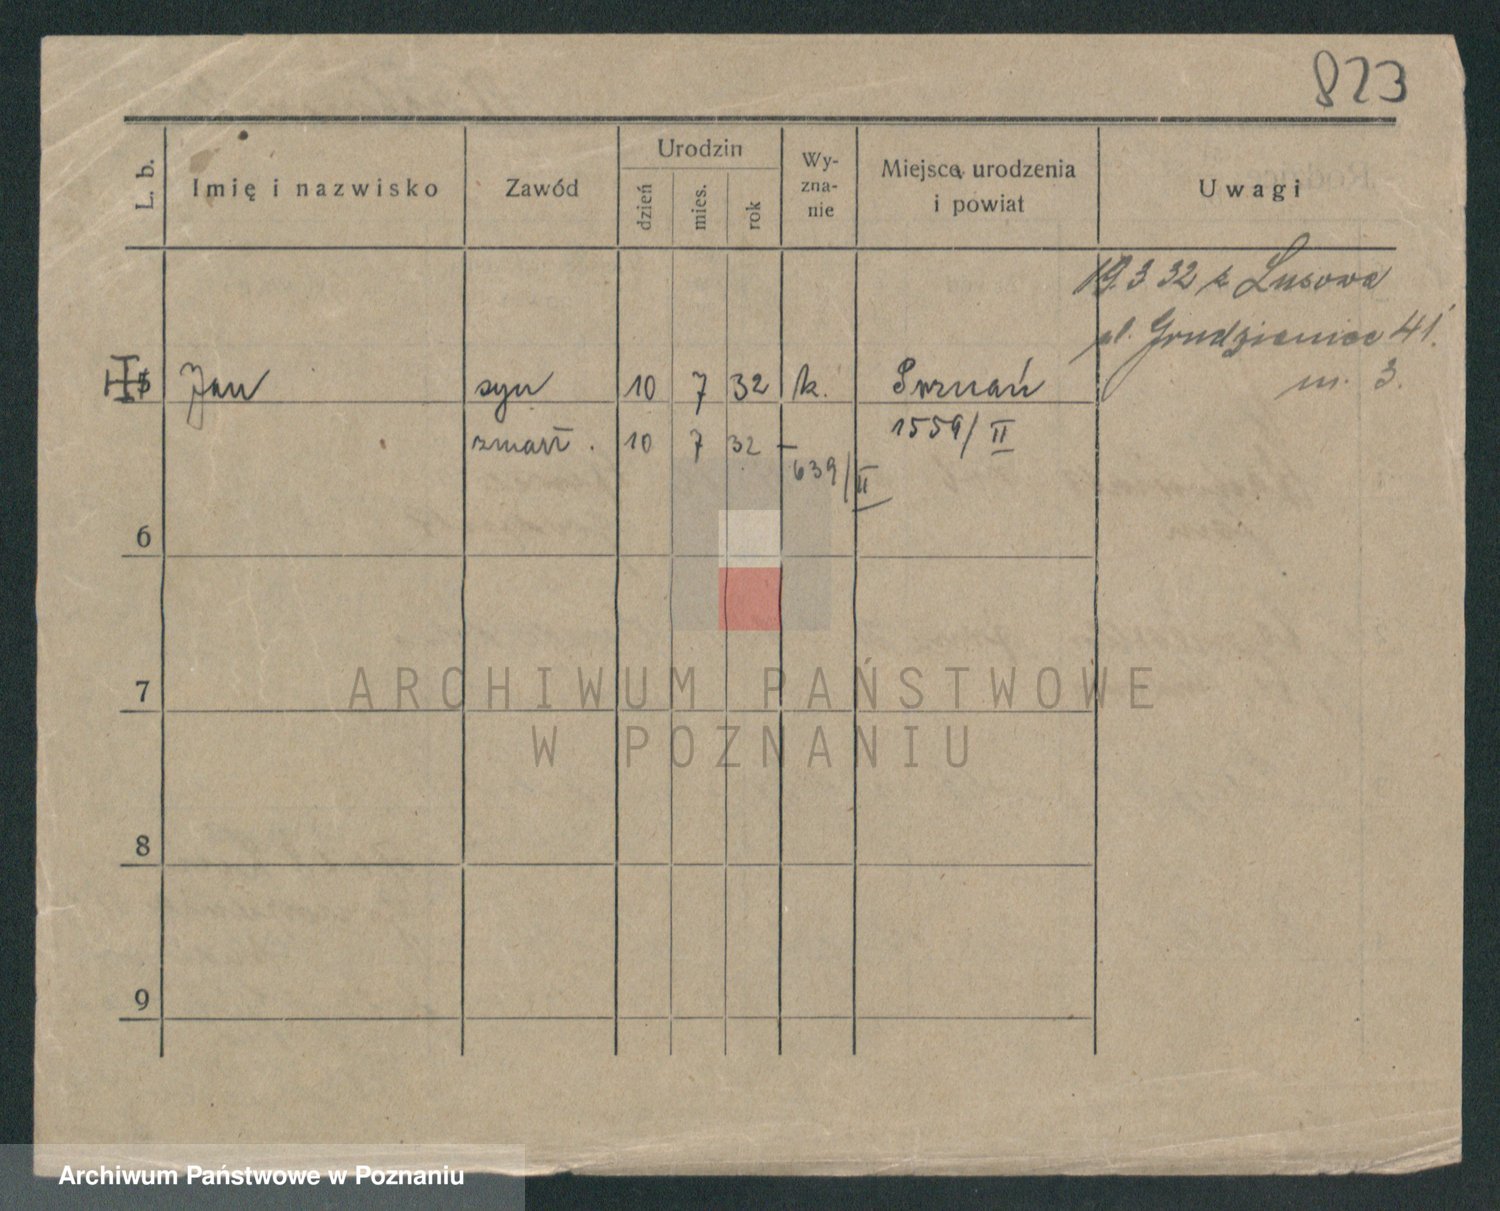 823
L. b. Imię i nazwisko Zawód Urodzin dzień mies. rok Wy-zna-nie Miejsce urodzenia i powiat Uwagi
19.3 32 z Lusowa
ul. Grudzieniec 41.
m. 3.
5 Jan syn 10 7 32 k. Poznań
zmarł. 10 7 32 – 1559/II
639/II
6
7
8
9
ARCHIWUM PAŃSTWOWE
W POZNANIU
Archiwum Państwowe w Poznaniu